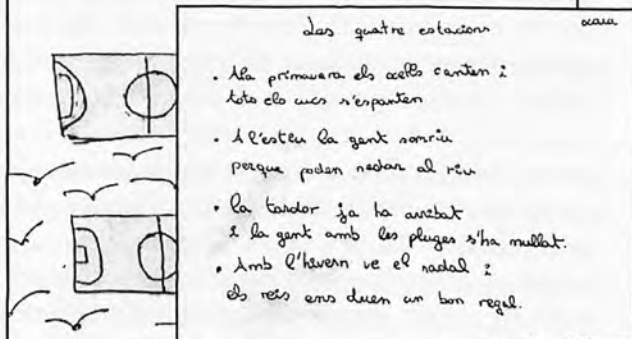 Las quatre estacions
• A la primavera els ocells canten i
tots els cucs s'espanten
• A l'estiu la gent somriu
perque poden nedar al riu
• la tardor ja ha arribat
i la gent amb les pluges s'ha mullat.
• Amb l'hivern ve el nadal i
els reis ens duen un bon regal.